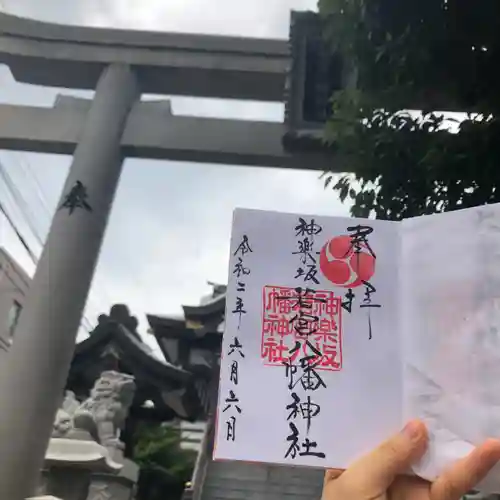 奉拝
神楽坂
若宮八幡神社
神楽坂
若宮八
幡神社
令和二年六月六日
奉